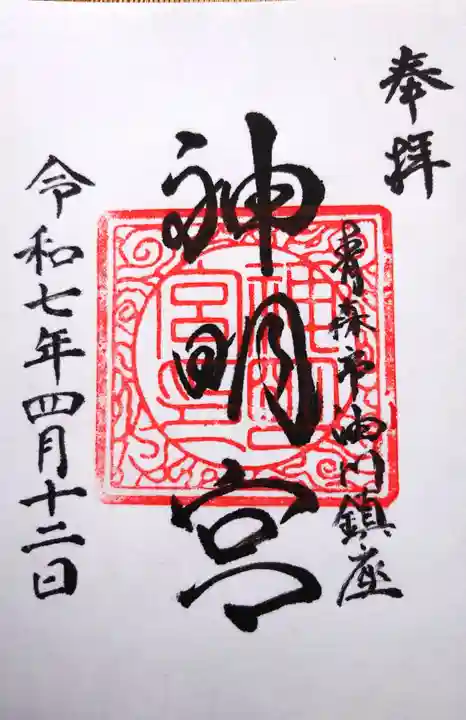 奉拝
青森市油川鎮座
神明宮
神明宮印
令和七年四月十二日